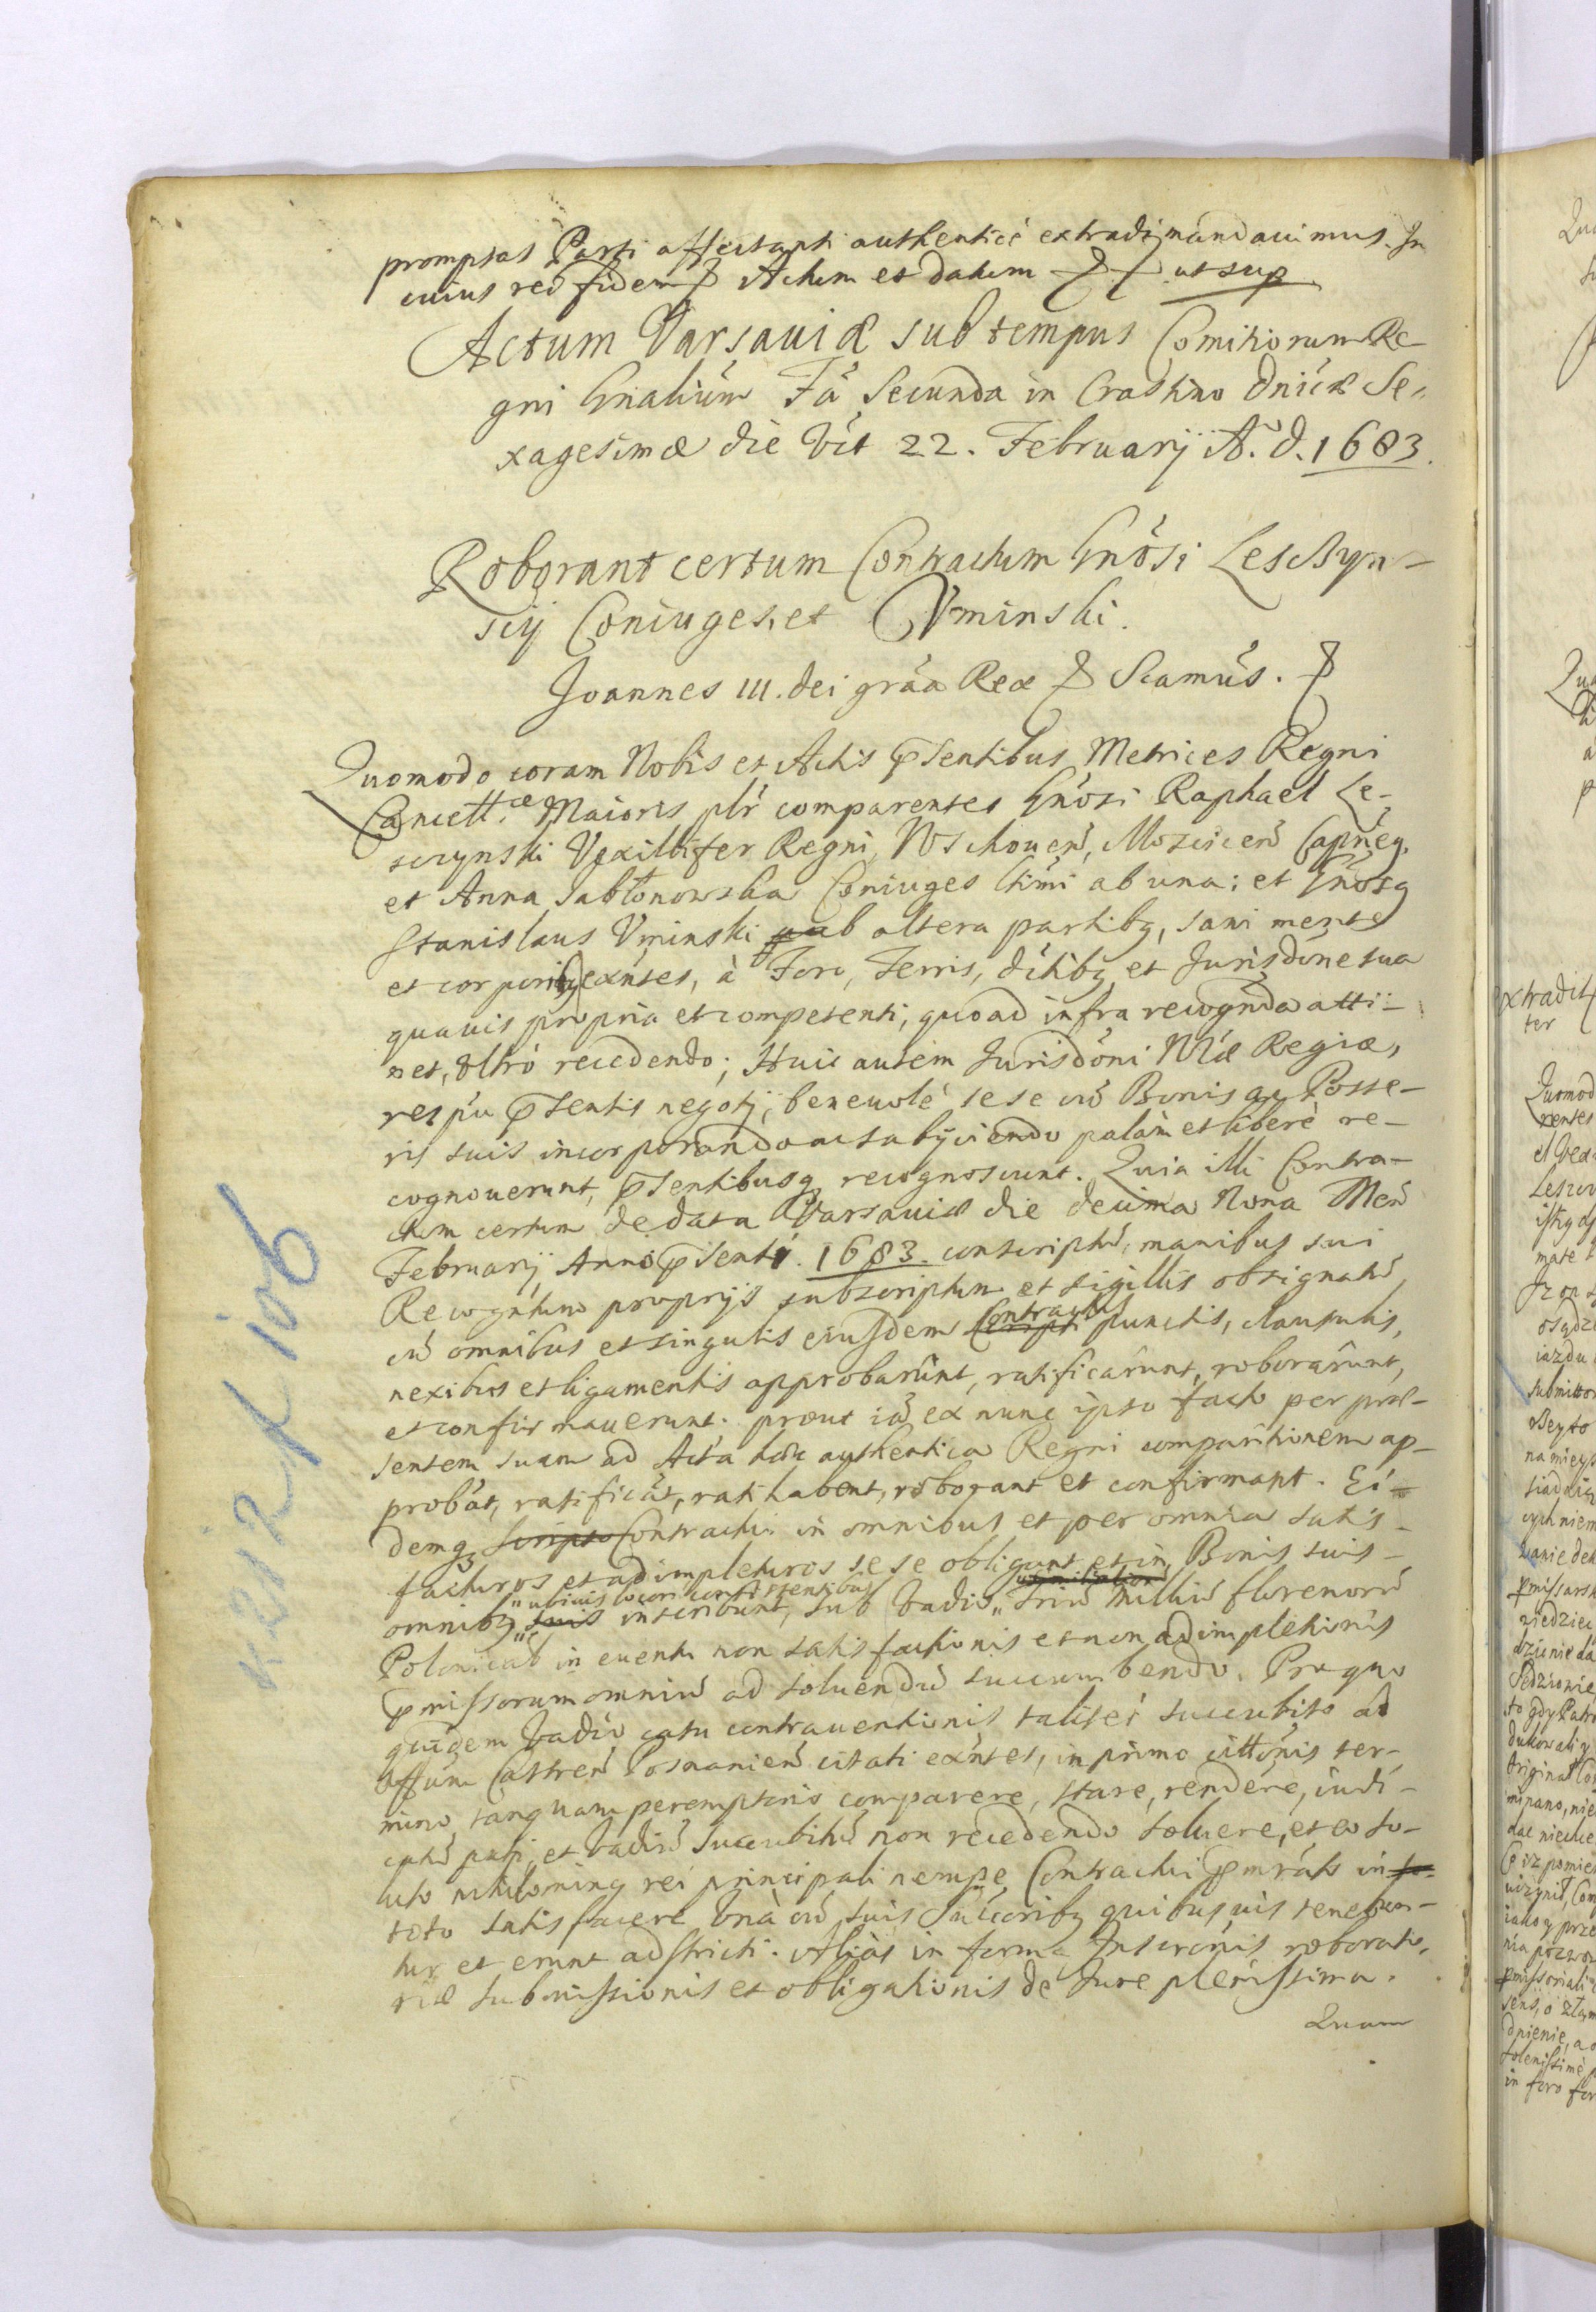 promptas Parti affectanti authenticè extradi mandavimus. In
cuius rei fidem ꝑ Actum et datum ꝑ ut sup
Actum Varsaviæ sub tempus Comitiorum Re-
gni Gnalium Fã Secunda in Crastino Dnicæ Se-
xagesimæ die Vẽt 22. Februarij A. D. 1683.
Roborant certum Contractum Gnosi Leschyn-
scij Coniuges, et Vminski.
Joannes III. Dei grãa Rex ꝑ Scamus. ꝑ
Quomodo coram Nobis et Actis p̃sentibus Metrices Regni
Cancell. Maioris plr̃ comparentes Gnosi Raphael Le-
sczynski Vexillifer Regni, Wschouen̄, Moscicen̄ Capneq,
et Anna Jabłonowska Coniuges ltimi ab una; et Gnosq
Stanislaus Vminski ab altera partibq, sani mente
et corporibq exñtes, à Foro, Terris, dctibq et Jurisdone sua
quavis propria et competenti, quoad infra recognda atti-
net, vltrò recedendo; Huic autem Jurisdoni Nræ Regiæ,
respu p̃sentis negotij, benevolè sese cū Bonis ac Posse-
ris suis incorporando ac subijciendo palàm et liberè re-
cognoverunt, p̃sentibusq recognoscunt. Quia illi Contra-
ctum certum de data Varsaviæ die decima Nona Men̄
Februarij Anno p̃senti. 1683. conscriptū, manibus sui
Recogntium proprijs subscriptum et sigillis obsignatū,
cū omnibus et singulis eiusdem Contractus punctis, clausulis,
nexibus et ligamentis approbarunt, ratificarunt, roborarunt,
et confirmaverunt. prout iā ex nunc ipso facto per præ-
sentem suam ad Acta hæc authentica Regni comparitionem ap-
probāt, ratificāt, ratihabent, roborant et confirmant. Ei-
demq Scripto Contractui in omnibus et per omnia satis-
facturos et adimpleturos sese obligant et in Bonis suis
omnibq suis inscribunt, sub Vadio Triū Milliū florenorū
Polonical in eventu non satisfactionis et non adimpletionis
p̃missorum omniū ad solvendū succumbendo. Pro quo
quidem Vadio casu contraventionis taliter succubito ad
Offum Castren̄ Posnanien̄ citati exñtes, in primo cittonis ter-
mino, tanquam peremptorio comparere, stare, rendere, iudi-
catū pati, et Vadiū succubitū non recedendo solvere, et eo so-
luto nihilominq rei principali nempe Contractui p̃mrāto in
toto satisfacere Vnà cū suis Succoribq quibusvis tenebun-
tur et erunt adstricti. Aliàs in forma Inscronis roborato-
riæ submissionis et obligationis de Jure plenissima.
Quam